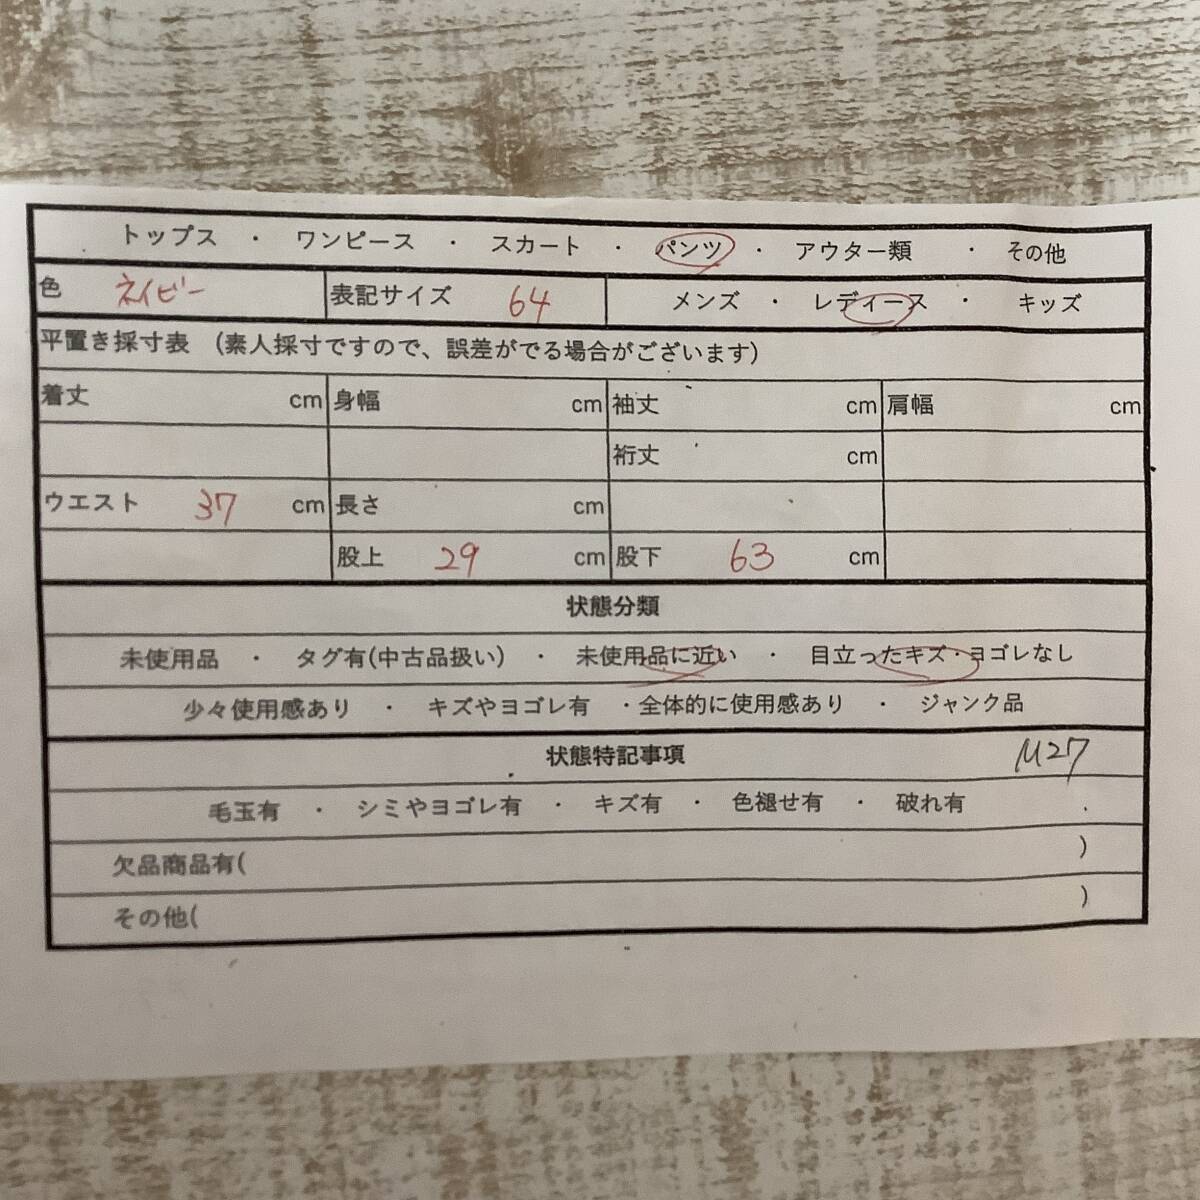 トップス ・ ワンピース ・ スカート ・ パンツ ・ アウター類 ・ その他
色 ネイビー 表記サイズ 64 メンズ ・ レディース ・ キッズ
平置き採寸表 （素人採寸ですので、誤差がでる場合がございます）
着丈 cm 身幅 cm 袖丈 cm 肩幅 cm
裄丈 cm
ウエスト 37 cm 長さ cm
股上 29 cm 股下 63 cm
状態分類
未使用品 ・ タグ有(中古品扱い) ・ 未使用品に近い ・ 目立ったキズ・ヨゴレなし
少々使用感あり ・ キズやヨゴレ有 ・全体的に使用感あり ・ ジャンク品
状態特記事項 M27
毛玉有 ・ シミやヨゴレ有 ・ キズ有 ・ 色褪せ有 ・ 破れ有
欠品商品有( )
その他( )